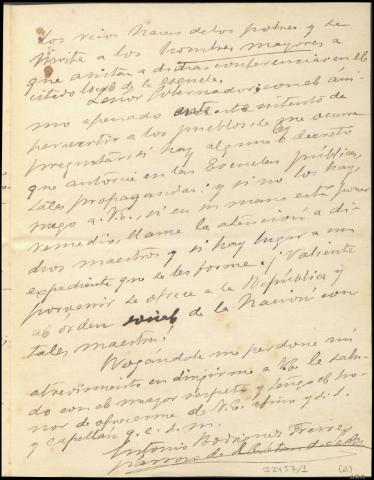 los ricos hacen de los pobres y se
invita a los hombres mayores a
que asistan a dichas conferencias en el
citado local de la escuela.
Señor Gobernador: con el áni-
mo apenado ante este intento de
pervertir a los pueblos, se me ocurre
preguntar si hay alguna ley o decreto
que autorice en las Escuelas públicas
tales propagandas: y si no los hay,
ruego a V.E., si en su mano está poner
remedio, llame la atención a di-
chos maestros y si hay lugar a un
expediente que se les forme. ¡Valiente
porvenir se ofrece a la República y
al orden social de la Nación con
tales maestros!
Rogándole me perdone mi
atrevimiento en dirigirme a V.E. le salu-
do con el mayor respeto y tengo el ho-
nor de ofrecerme de V.E. afmo y s.s.
y capellán q.e.s.m.
Antonio Rodríguez Freire
párroco de
32457/1 (2)